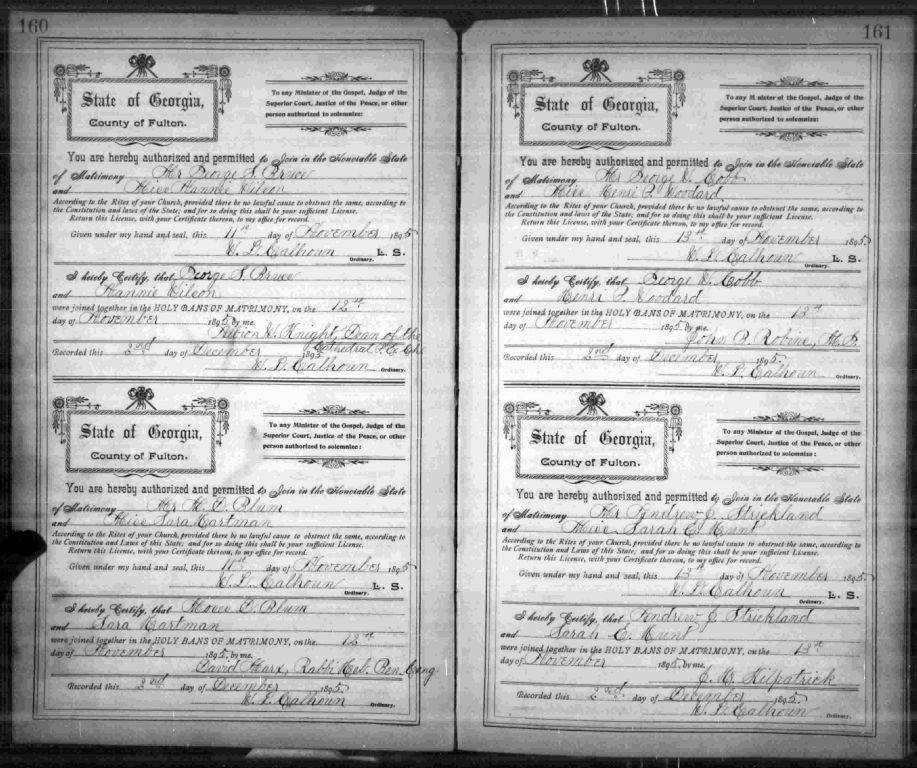 160
State of Georgia,
County of Fulton.
To any Minister of the Gospel, Judge of the
Superior Court, Justice of the Peace, or other
person authorized to solemnize:
You are hereby authorized and permitted to Join in the Honorable State
of Matrimony Mr George S. Bruce
and Miss Nannie Wilson
According to the Rites of your Church, provided there be no lawful cause to obstruct the same, according to
the Constitution and laws of the State; and for so doing this shall be your sufficient License.
Return this License, with your Certificate thereon, to my office for record.
Given under my hand and seal, this 11th day of November 1895
W. L. Calhoun L. S.
Ordinary.
I hereby Certify, that George S. Bruce
and Nannie Wilson
were joined together in the HOLY BANS OF MATRIMONY, on the 12th
day of November 1895 by me.
Albion W. Knight Dean of the
Cathedral
Recorded this 2nd day of December 1895
W. L. Calhoun Ordinary.
State of Georgia,
County of Fulton.
To any Minister of the Gospel, Judge of the
Superior Court, Justice of the Peace, or other
person authorized to solemnize:
You are hereby authorized and permitted to Join in the Honorable State
of Matrimony Mr M. D. Blum
and Miss Sara Hartman
According to the Rites of your Church, provided there be no lawful cause to obstruct the same, according to the
Constitution and Laws of this State; and for so doing this shall be your sufficient License.
Return this License, with your Certificate thereon, to my office for record.
Given under my hand and seal, this day of November 1895
W. L. Calhoun L. S.
Ordinary.
I hereby Certify, that D. Blum
and Sara Hartman
were joined together in the HOLY BANS OF MATRIMONY, on the 12th
day of November 1895, by me.
David Marx, Rabbi Heb. Ben. Cong.
Recorded this 2nd day of December 1895
W. L. Calhoun Ordinary.
161
State of Georgia,
County of Fulton.
To any Minister of the Gospel, Judge of the
Superior Court, Justice of the Peace, or other
person authorized to solemnize:
You are hereby authorized and permitted to Join in the Honorable State
of Matrimony Mr George W. Cobb
and Miss Henri P. Woodard
According to the Rites of your Church, provided there be no lawful cause to obstruct the same, according to
the Constitution and laws of the State; and for so doing this shall be your sufficient License.
Return this License, with your Certificate thereon, to my office for record.
Given under my hand and seal, this 13th day of November 1895
W. L. Calhoun L. S.
Ordinary.
I hereby Certify, that George W. Cobb
and Henri P. Woodard
were joined together in the HOLY BANS OF MATRIMONY, on the 13th
day of November 1895 by me.
John B. Robins, M.G.
Recorded this 2nd day of December 1895.
W. L. Calhoun Ordinary.
State of Georgia,
County of Fulton.
To any Minister of the Gospel, Judge of the
Superior Court, Justice of the Peace, or other
person authorized to solemnize:
You are hereby authorized and permitted to Join in the Honorable State
of Matrimony Mr Andrew J. Strickland
and Miss Sarah E. Hunt
According to the Rites of your Church, provided there be no lawful cause to obstruct the same, according to the
Constitution and Laws of this State; and for so doing this shall be your sufficient License.
Return this License, with your Certificate thereon, to my office for record.
Given under my hand and seal, this 13th day of November 1895
W. L. Calhoun L. S.
Ordinary.
I hereby Certify, that Andrew J. Strickland
and Sarah E. Hunt
were joined together in the HOLY BANS OF MATRIMONY, on the 13th
day of November 1895, by me.
J. M. Kilpatrick
Recorded this 2nd day of December 1895.
W. L. Calhoun Ordinary.